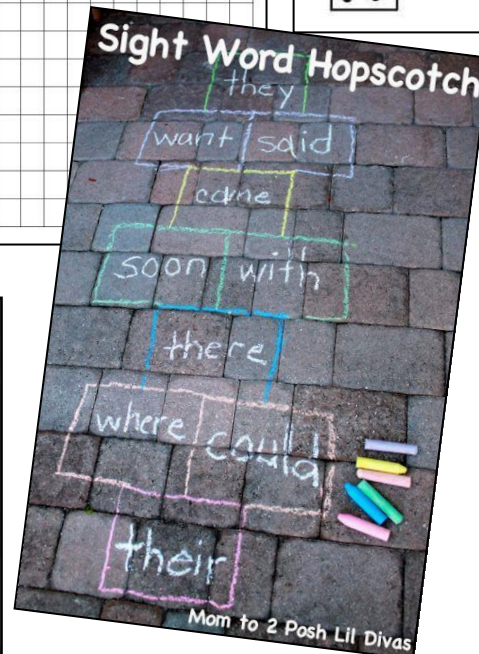 Sight Word Hopscotch
they
want said
came
soon with
there
where could
their
Mom to 2 Posh Lil Divas